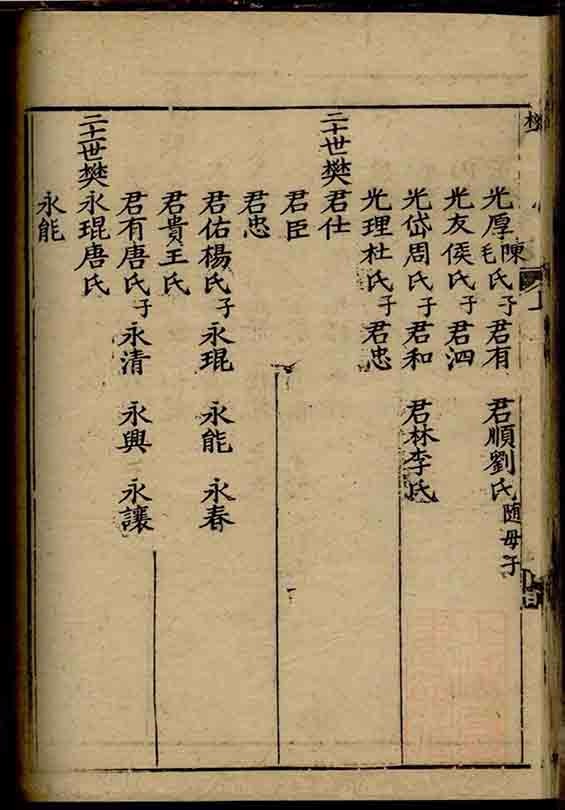 樊
光厚陳毛氏子君有 君順劉氏随母子
光友侯氏子君泗
光岱周氏子君和 君林李氏
光理杜氏子君忠
二十世樊君仕
君臣
君忠
君佑楊氏子永琨 永能 永春
君貴王氏
君有唐氏子永清 永興 永讓
二十一世樊永琨唐氏
永能